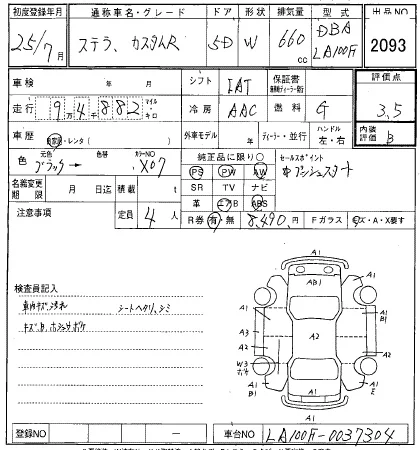 初度登録年月 通称車名・グレード ドア 形状 排気量 型式 出品NO
25年7月 ステラ、カスタムR 5D W 660cc DBA LA100F 2093
車検 年 月 シフト IAT 保証書 評価点
走行 9万4千882 マイル キロ 冷房 AAC 燃料 G 3.5
車歴 自家用・レンタ( ) 外車モデル 年 ディーラー・並行 ハンドル 左・右 内装評価 B
色 元色 ブラック → 色替 カラーNO X07 純正品に限り○ セールスポイント
PS PW AW プッシュスタート
名義変更期限 月 日迄 積載 t SR TV ナビ
革 エアB ABS
注意事項 定員 4人 R券 有・無 8,490円 Fガラス キズ・A・X要す
検査員記入
車内キズ汚れ シートヘタリ、シミ
A1
AB1
A1 A1
A1 B1
A3 A2 A1
A2 A2
W3
A1 A1
B1 E
A1
登録NO 車台NO LA100F-0037304